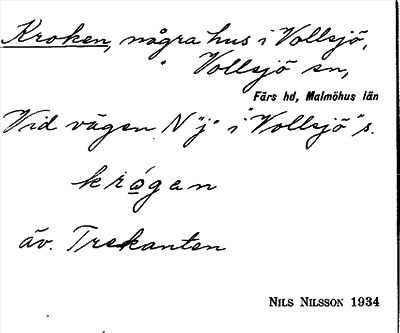 Kroken, några hus i Vollsjö,
Vollsjö sn,
Färs hd, Malmöhus län
Vid vägen N "j" i "Vollsjö" s.
krågen
äv. Trekanten
NILS NILSSON 1934